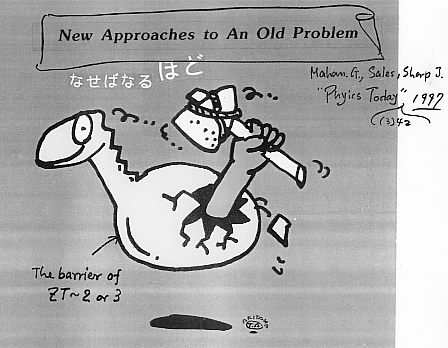 New Approaches to An Old Problem
なせばなるほど
Mahan. G., Sales, Sharp J.
"Phyics Today" 1997
(3)42
The barrier of
ZT~2 or 3